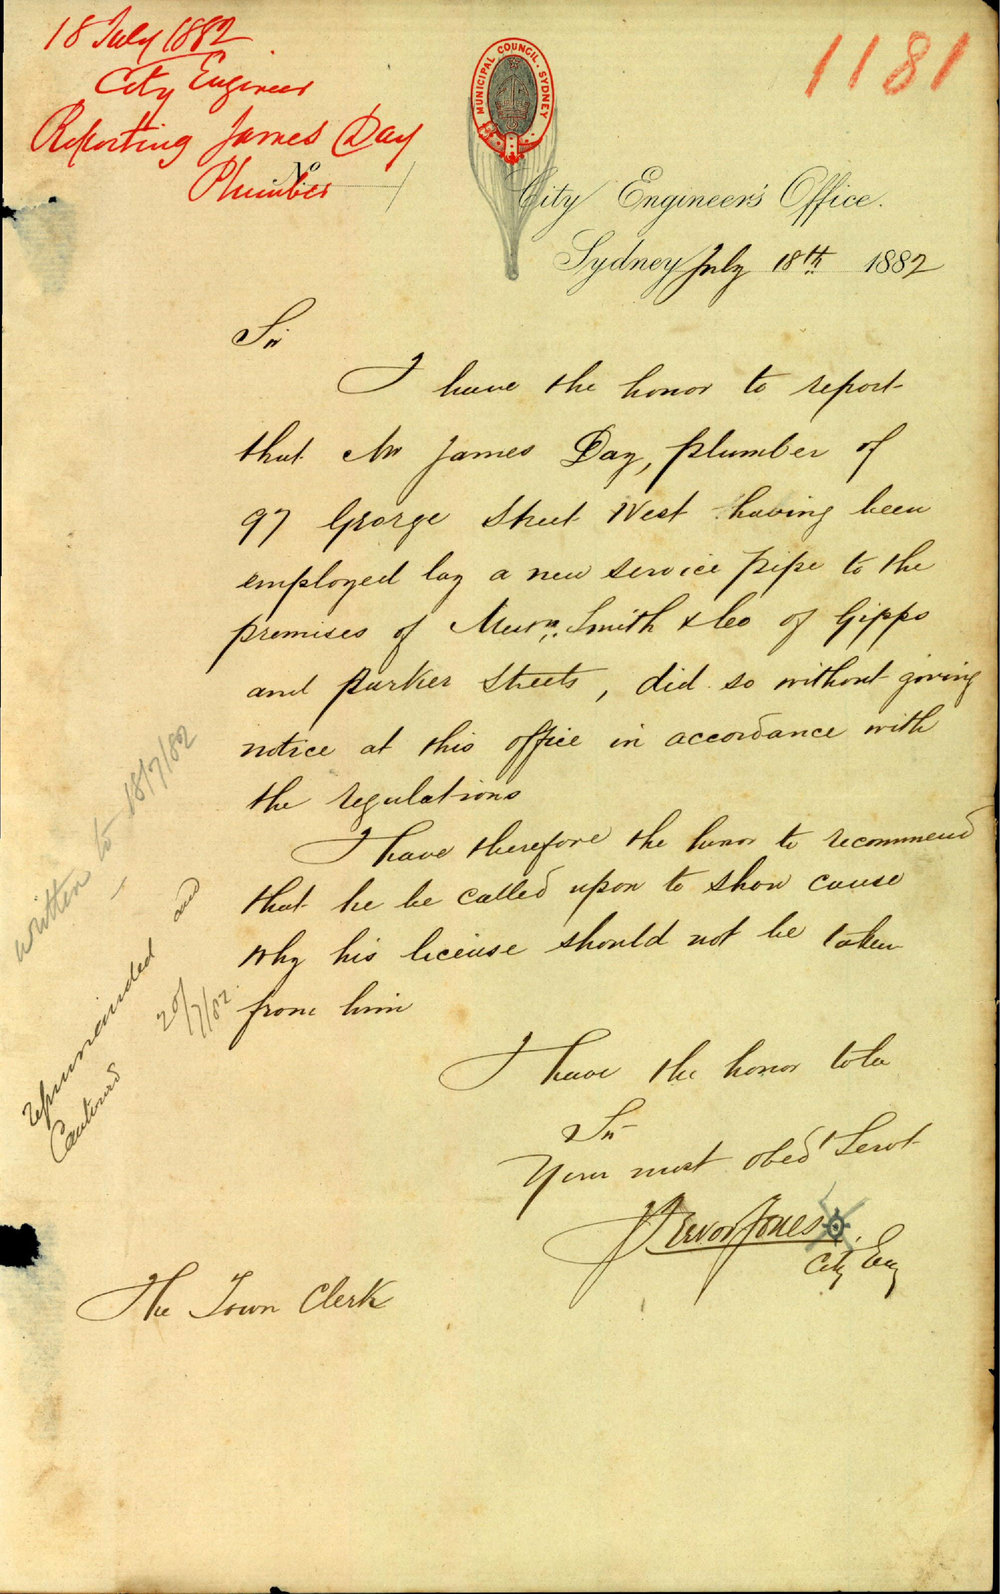 18 July 1882
City Engineer
Reporting James Day
Plumber
No
1181
MUNICIPAL COUNCIL. SYDNEY
City Engineer's Office.
Sydney July 18th 1882
Sir
I have the honor to report
that Mr James Day, plumber of
97 George Street West having been
employed lay a new service pipe to the
premises of Messrs. Smith & Co of Gipps
and Parker Streets, did so without giving
notice at this office in accordance with
the regulations
I have therefore the honor to recommend
that he be called upon to show cause
why his license should not be taken
from him
I have the honor to be
Sir
Your most obed Servt
J Trevor Jones
City Eng
The Town Clerk
written to 18/7/82
reprimanded and
Cautioned
20/7/82